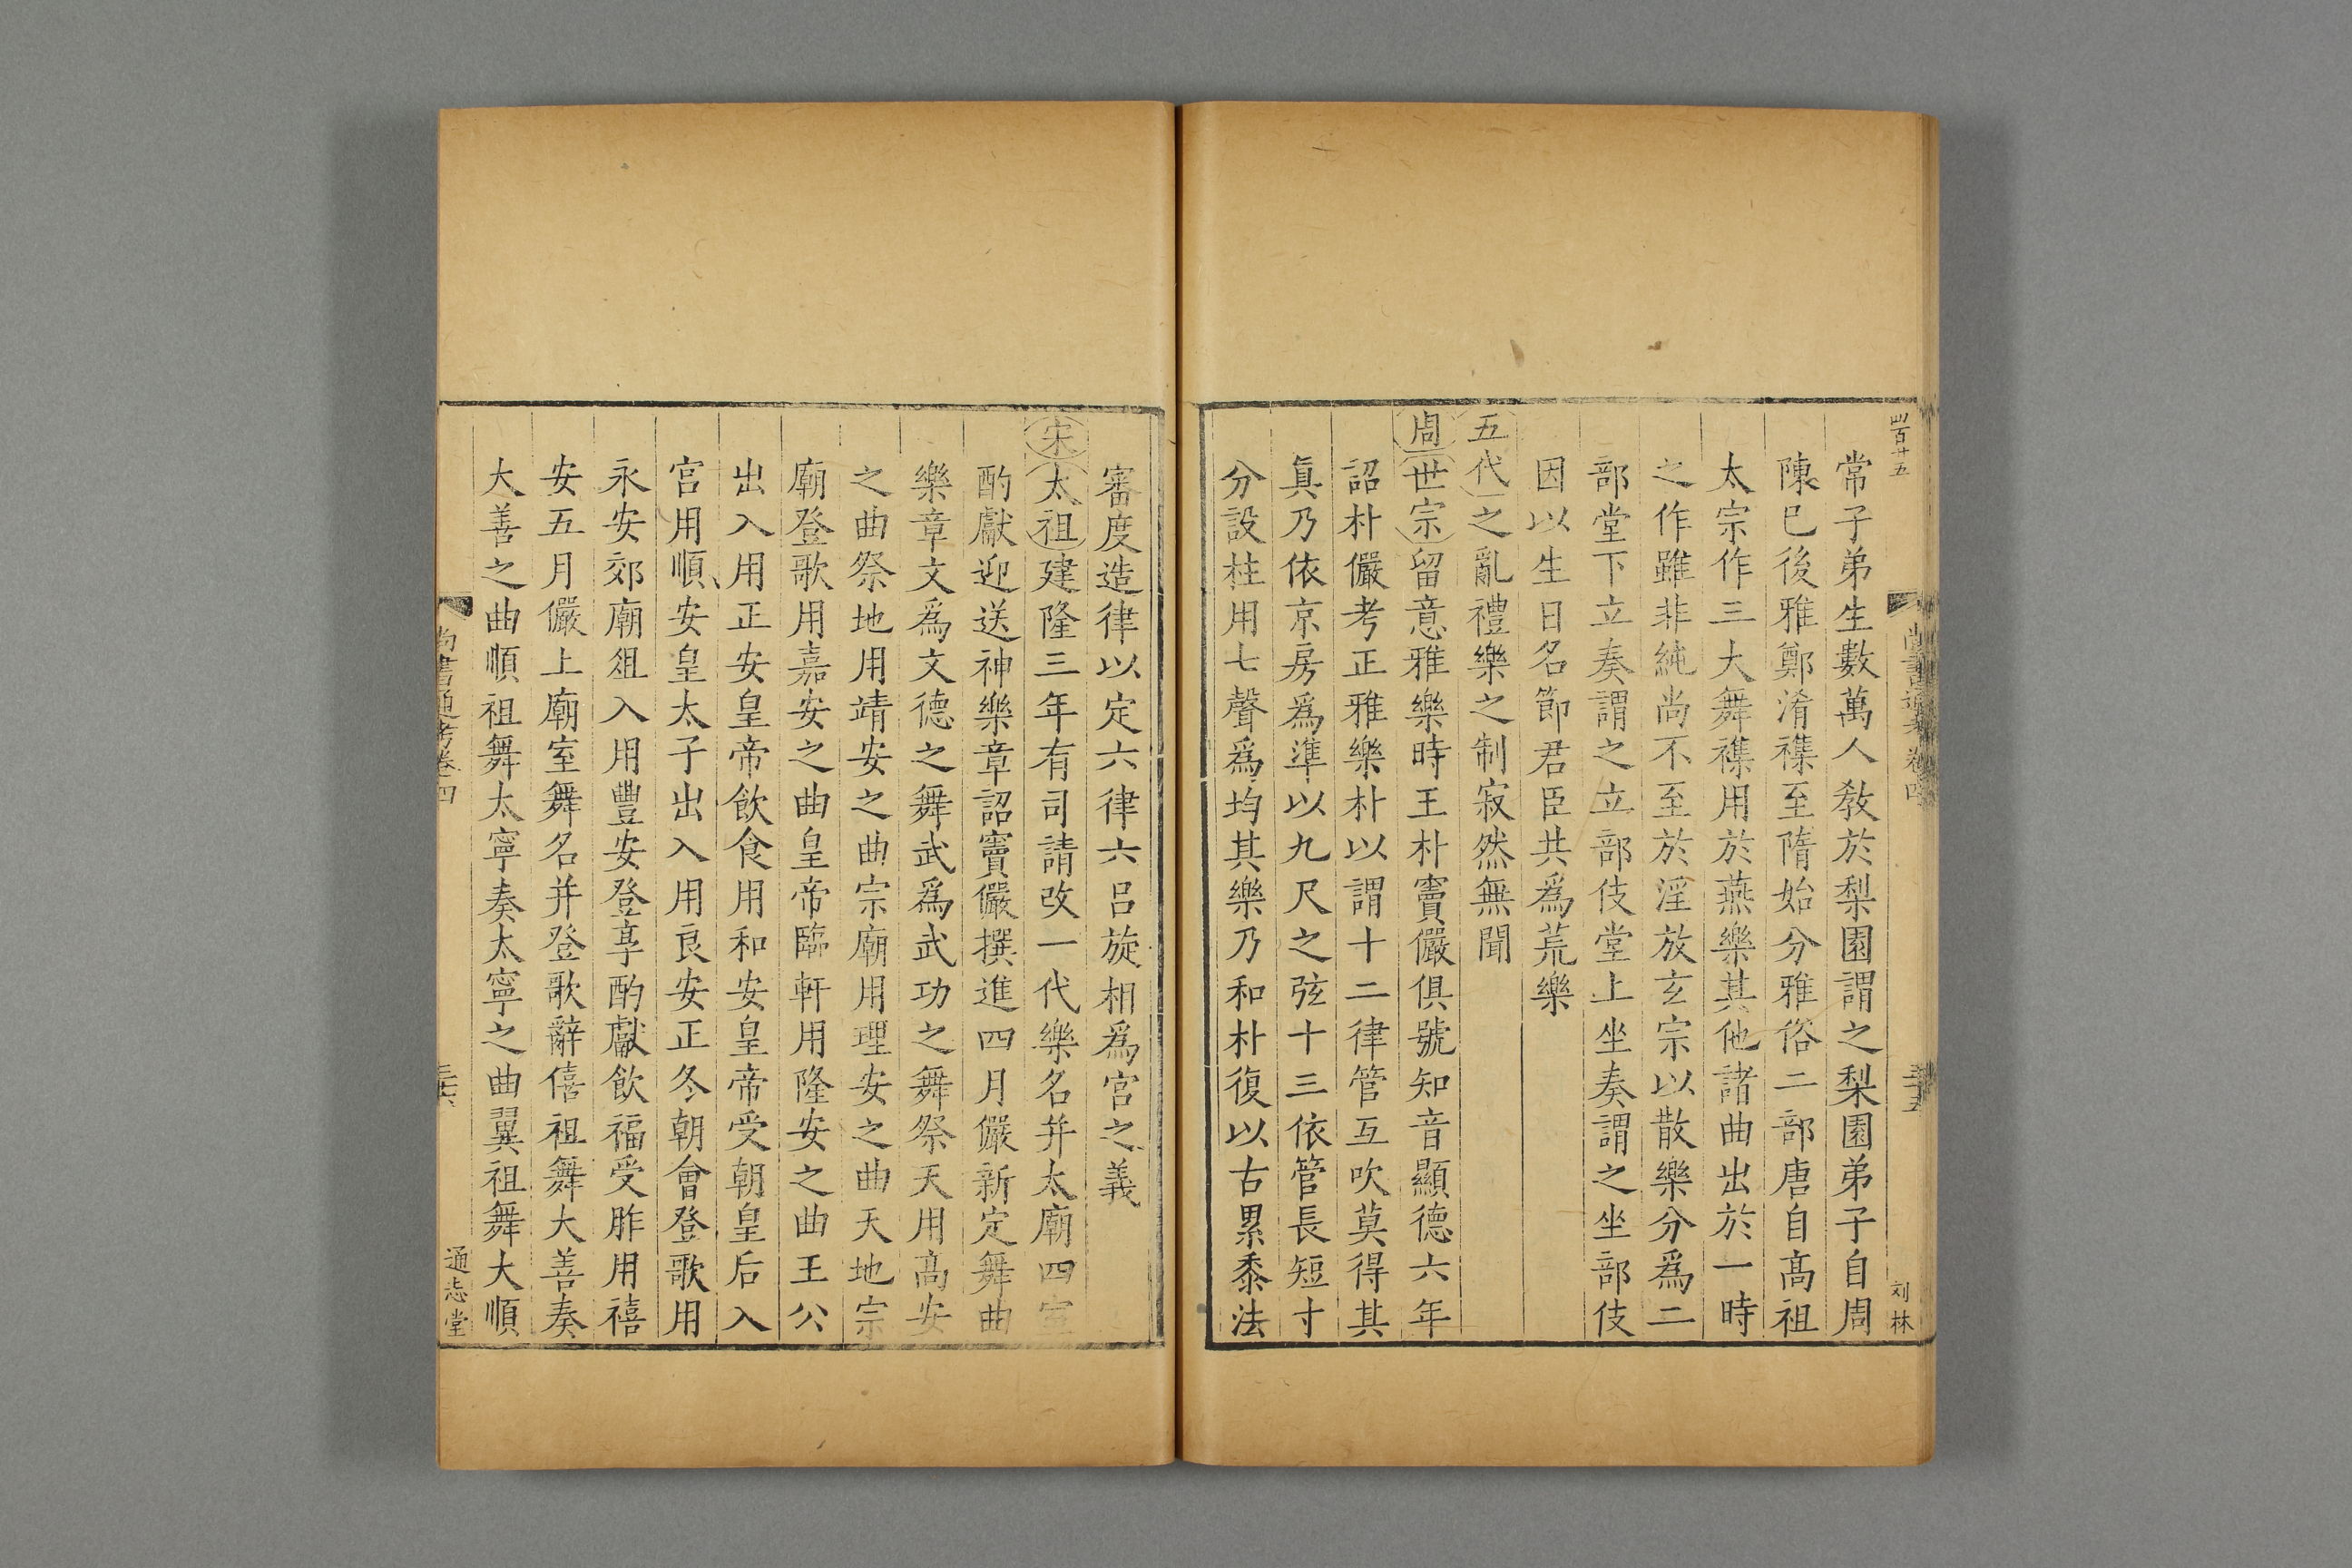 常子弟生數萬人敎於梨園謂之梨園弟子自周
陳已後雅鄭淆襍至隋始分雅俗二部唐自髙祖
太宗作三大舞襍用於燕樂其他諸曲出於一時
之作雖非純尚不至於淫放玄宗以散樂分爲二
部堂下立奏謂之立部伎堂上坐奏謂之坐部伎
因以生日名節君臣共爲荒樂
五代之亂禮樂之制寂然無聞
周世宗留意雅樂時王朴竇儼俱號知音顯德六年
詔朴儼考正雅樂朴以謂十二律管互吹莫得其
眞乃依京房爲準以九尺之弦十三依管長短寸
分設柱用七聲爲均其樂乃和朴復以古累黍法
尚書通考卷四
三十五
刘林
審度造律以定六律六呂旋相爲宮之義
宋太祖建隆三年有司請改一代樂名并太廟四室
酌獻迎送神樂章詔竇儼撰進四月儼新定舞曲
樂章文爲文德之舞武爲武功之舞祭天用髙安
之曲祭地用靖安之曲宗廟用理安之曲天地宗
廟登歌用嘉安之曲皇帝臨軒用隆安之曲王公
出入用正安皇帝飮食用和安皇帝受朝皇后入
宮用順安皇太子出入用良安正冬朝會登歌用
永安郊廟俎入用豐安登享酌獻飮福受胙用禧
安五月儼上廟室舞名并登歌辭僖祖舞大善奏
大善之曲順祖舞太寧奏太寧之曲翼祖舞大順
尚書通考卷四
三十六
通志堂